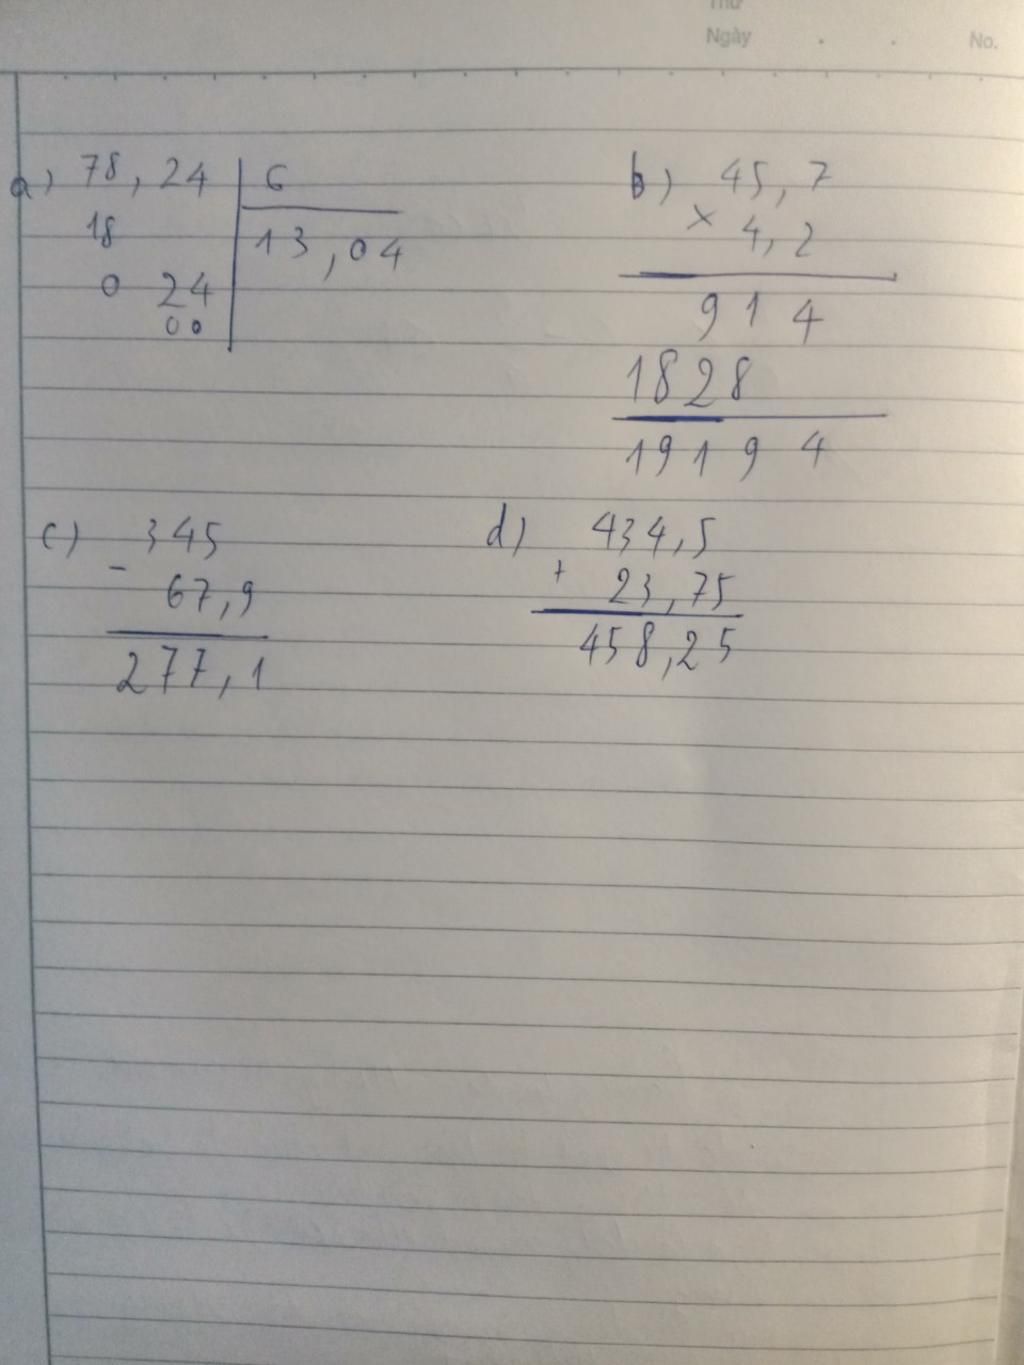 Thứ
Ngày . . No.
a) 78,24 | 6
18 13,04
0 24
00
b) 45,7
× 4,2
914
1828
19194
c) 345
- 67,9
277,1
d) 434,5
+ 23,75
458,25